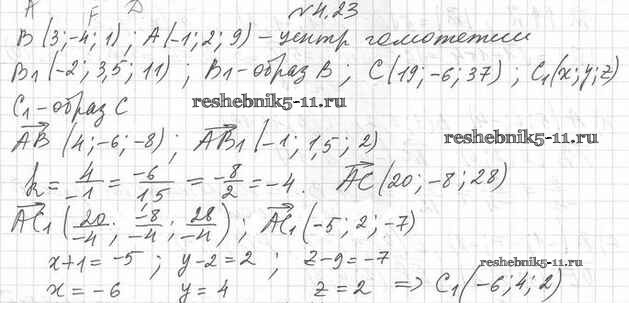 A F D
№4.23
B(3;-4;1); A(-1;2;9) – центр гомотетии
B₁(-2;3,5;11); B₁-образ B; C(19;-6;37); C₁(x;y;z)
C₁-образ C
reshebnik5-11.ru
AB⃗ (4;-6;-8); AB₁⃗ (-1;1,5;2)
reshebnik5-11.ru
k = 4/-1 = -6/1,5 = -8/2 = -4. AC⃗ (20;-8;28)
AC₁⃗ (20/-4; -8/-4; 28/-4); AC₁⃗ (-5;2;-7)
x+1=-5; y-2=2; z-9=-7
reshebnik5-11.ru
x=-6 y=4 z=2 => C₁(-6;4;2)